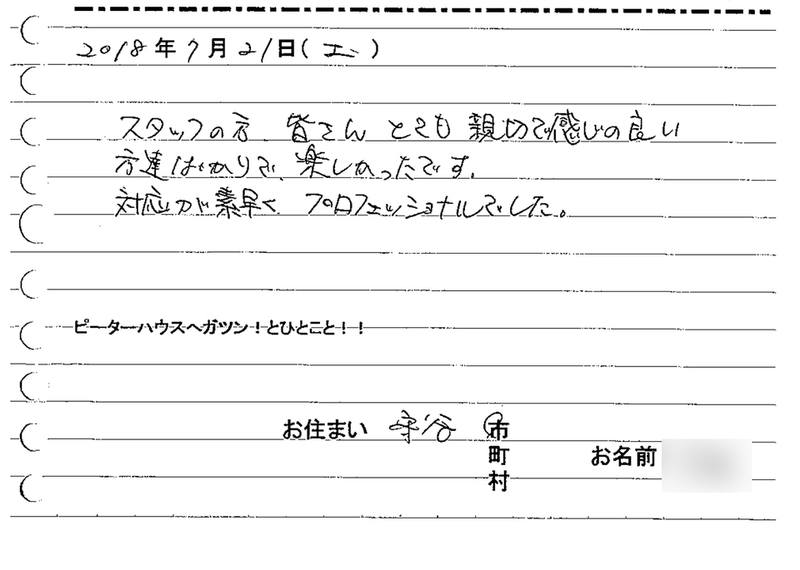 2018年7月21日(土)
スタッフの方、皆さん とても 親切で感じの良い
方達ばかりで、楽しかったです。
対応が素早く、プロフェッショナルでした。
ピーターハウスへガツン！とひとこと！！
お住まい 守谷 市
町
村
お名前